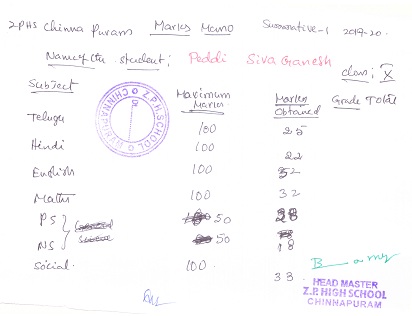 ZPHS Chinna puram Marks Memo Summative-1 2019-20.
Name of the student: Peddi Siva Ganesh
class: X
Subject Maximum Marks Marks Obtained Grade Total
Telugu 100 25
Hindi 100 22
English 100 52
Maths 100 32
PS 50 28
NS 50 18
Social 100 33
Z.P.H.SCHOOL CHINNAPURAM
HEAD MASTER
Z.P. HIGH SCHOOL
CHINNAPURAM